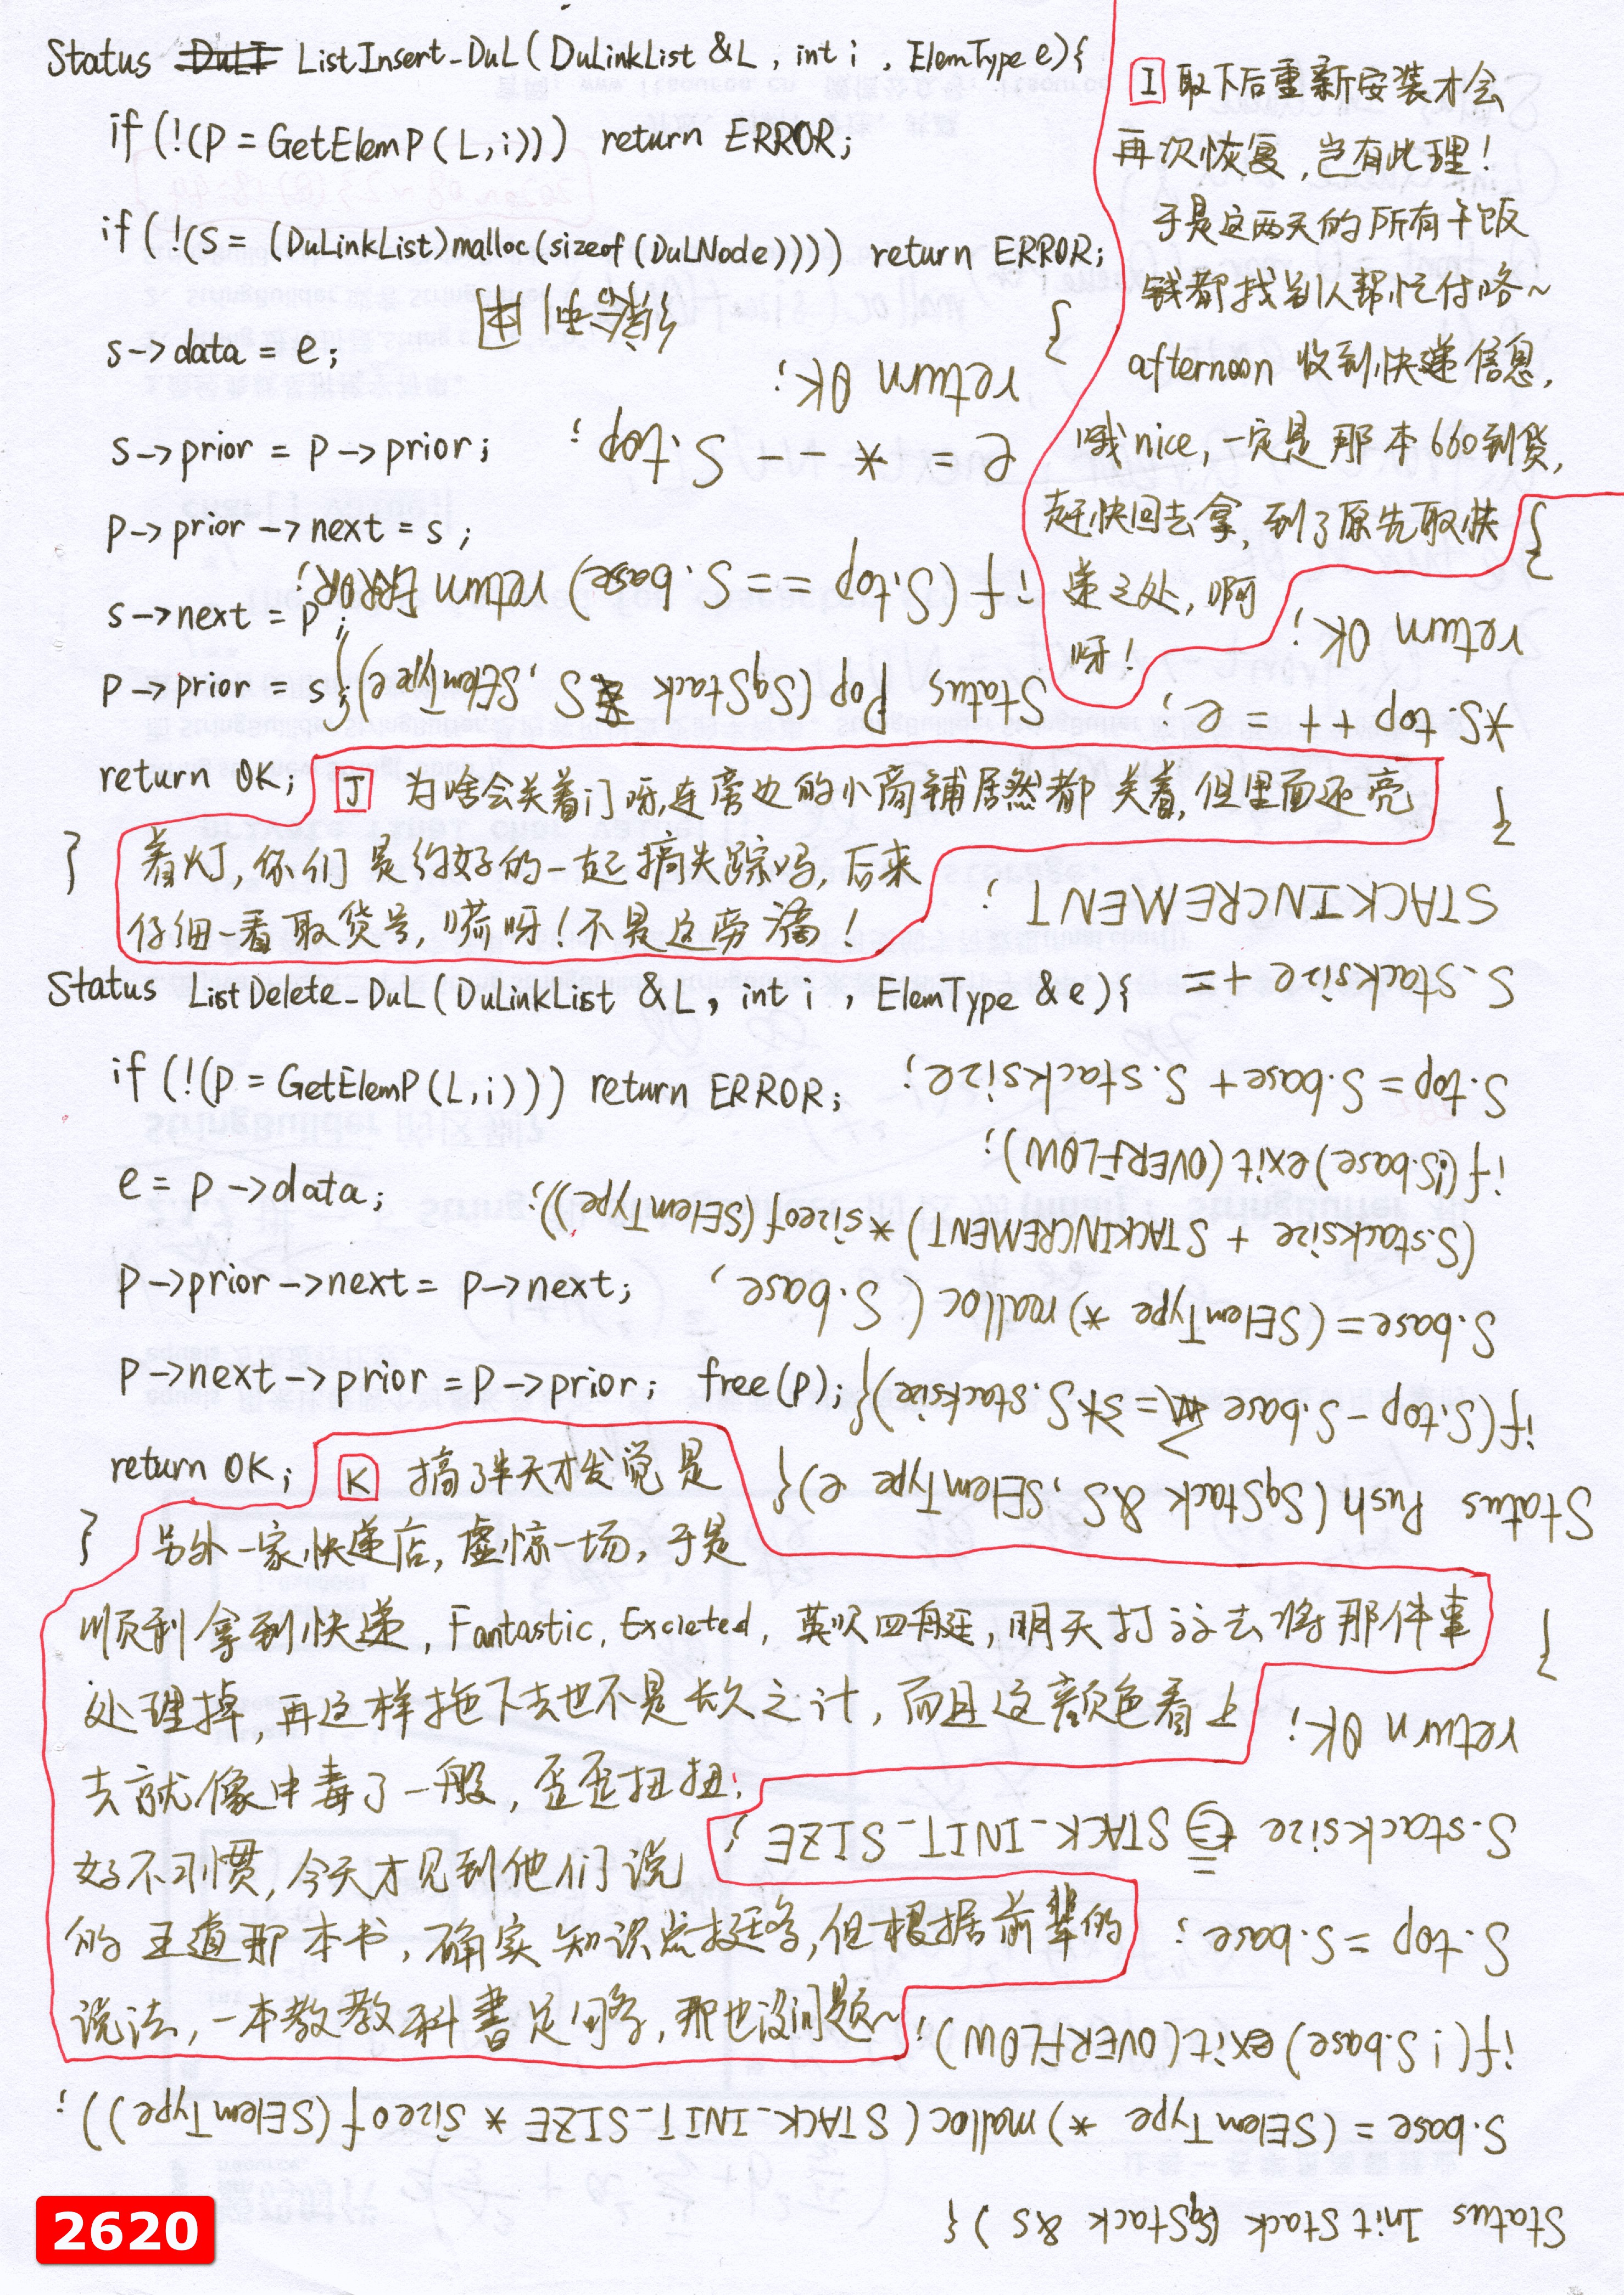 Status DuLI ListInsert_DuL(DuLinkList &L, int i, ElemType e){
if(!(P=GetElemP(L,i))) return ERROR;
if(!(S=(DuLinkList)malloc(sizeof(DuLNode)))) return ERROR;
s->data = e;
s->prior = p->prior;
p->prior->next = s;
s->next = p;
p->prior = s;
return OK;
}
I 取下后重新安装才会
再次恢复,岂有此理!
于是这两天的所有干饭
钱都找别人帮忙付咯~
afternoon 收到快递信息,
哦nice,一定是那本660到货,
赶快回去拿,到了原先取快
递之处,啊
呀!
J 为啥会关着门呀,连旁边的小商铺居然都关着,但里面还亮
着灯,你们是约好的一起搞失踪吗,后来
仔细一看取货号,嗬呀!不是这旁滴!
Status ListDelete_DuL(DuLinkList &L, int i, ElemType &e){
if(!(p=GetElemP(L,i))) return ERROR;
e = p->data;
p->prior->next = p->next;
p->next->prior = p->prior; free(p);
return OK;
}
K 搞了半天才发觉是
另外一家快递店,虚惊一场,于是
顺利拿到快递,Fantastic,Excieted,英吹四舟廷,明天打算去将那件事
处理掉,再这样拖下去也不是长久之计,而且这颜色看上
去就像中毒了一般,歪歪扭扭;
好不习惯,今天才见到他们说
的王道那本书,确实知识点挺多,但根据前辈的
说法,一本教教科书足够,那也没问题~
Status InitStack(SqStack &S){
S.base = (SElemType *)malloc(STACK_INIT_SIZE * sizeof(SElemType));
if(!S.base) exit(OVERFLOW);
S.top = S.base;
S.stacksize = STACK_INIT_SIZE;
return OK;
}
Status Push(SqStack &S, SElemType e){
if(S.top - S.base >= S.stacksize){
S.base = (SElemType *)malloc(S.base,
(S.stacksize + STACKINCREMENT) * sizeof(SElemType));
if(!S.base) exit(OVERFLOW);
S.top = S.base + S.stacksize;
S.stacksize +=
STACKINCREMENT;
}
*S.top++ = e;
return OK;
}
Status Pop(SqStack S, SElemType e){
if(S.top == S.base) return ERROR;
e = * -- S.top;
return OK;
}
2620